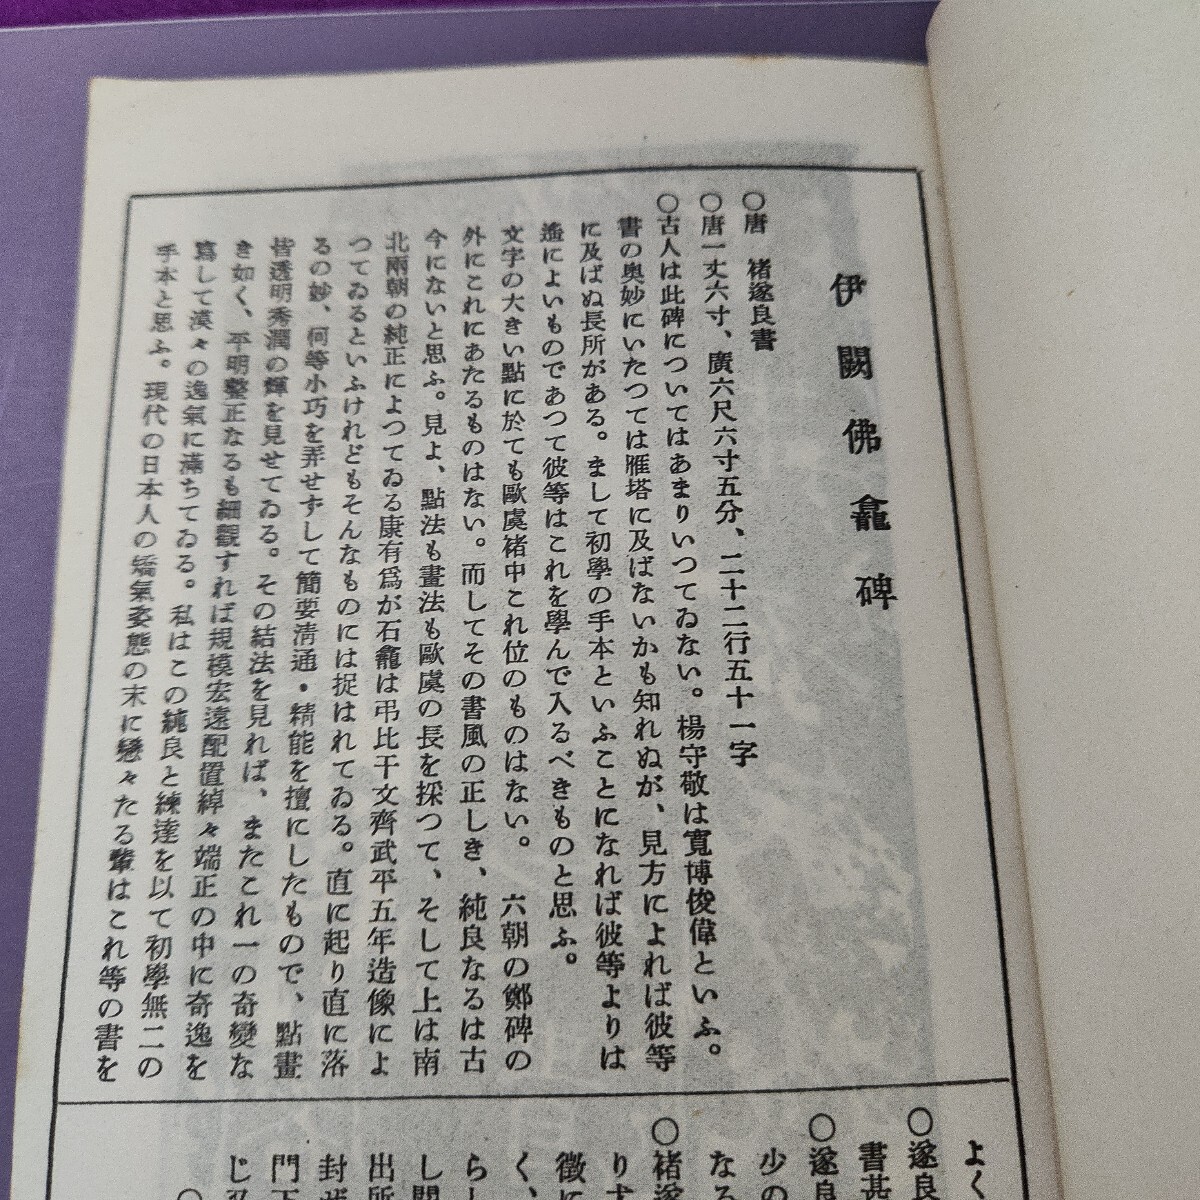 伊闕佛龕碑
〇唐　褚遂良書
〇唐一丈六寸、廣六尺六寸五分、二十二行五十一字
〇古人は此碑についてはあまりいつてゐない。楊守敬は寬博俊偉といふ。
書の奥妙にいたつては雁塔に及ばないかも知れぬが、見方によれば彼等
に及ばぬ長所がある。まして初學の手本といふことになれば彼等よりは
遙によいものであつて彼等はこれを學んで入るべきものと思ふ。
文字の大きい點に於ても歐虞褚中これ位のものはない。　六朝の鄭碑の
外にこれにあたるものはない。而してその書風の正しき、純良なるは古
今にないと思ふ。見よ、點法も畫法も歐虞の長を採つて、そして上は南
北兩朝の純正によつてゐる康有爲が石龕は弔比干文齊武平五年造像によ
つてゐるといふけれどもそんなものには捉はれてゐる。直に起り直に落
るの妙、何等小巧を弄せずして簡要淸通・精能を擅にしたもので、點畫
皆透明秀潤の輝を見せてゐる。その結法を見れば、またこれ一の奇變な
き如く、平明整正なるも細觀すれば規模宏遠配置綽々端正の中に奇逸を
寫して漠々の逸氣に滿ちてゐる。私はこの純良と練達を以て初學無二の
手本と思ふ。現代の日本人の矯氣姿態の末に戀々たる輩はこれ等の書を
よく
〇遂良
書甚
〇遂良
少の
なる
〇褚遂
りす
徴に
く、
らし
し
出所
封
門下
じ
〇